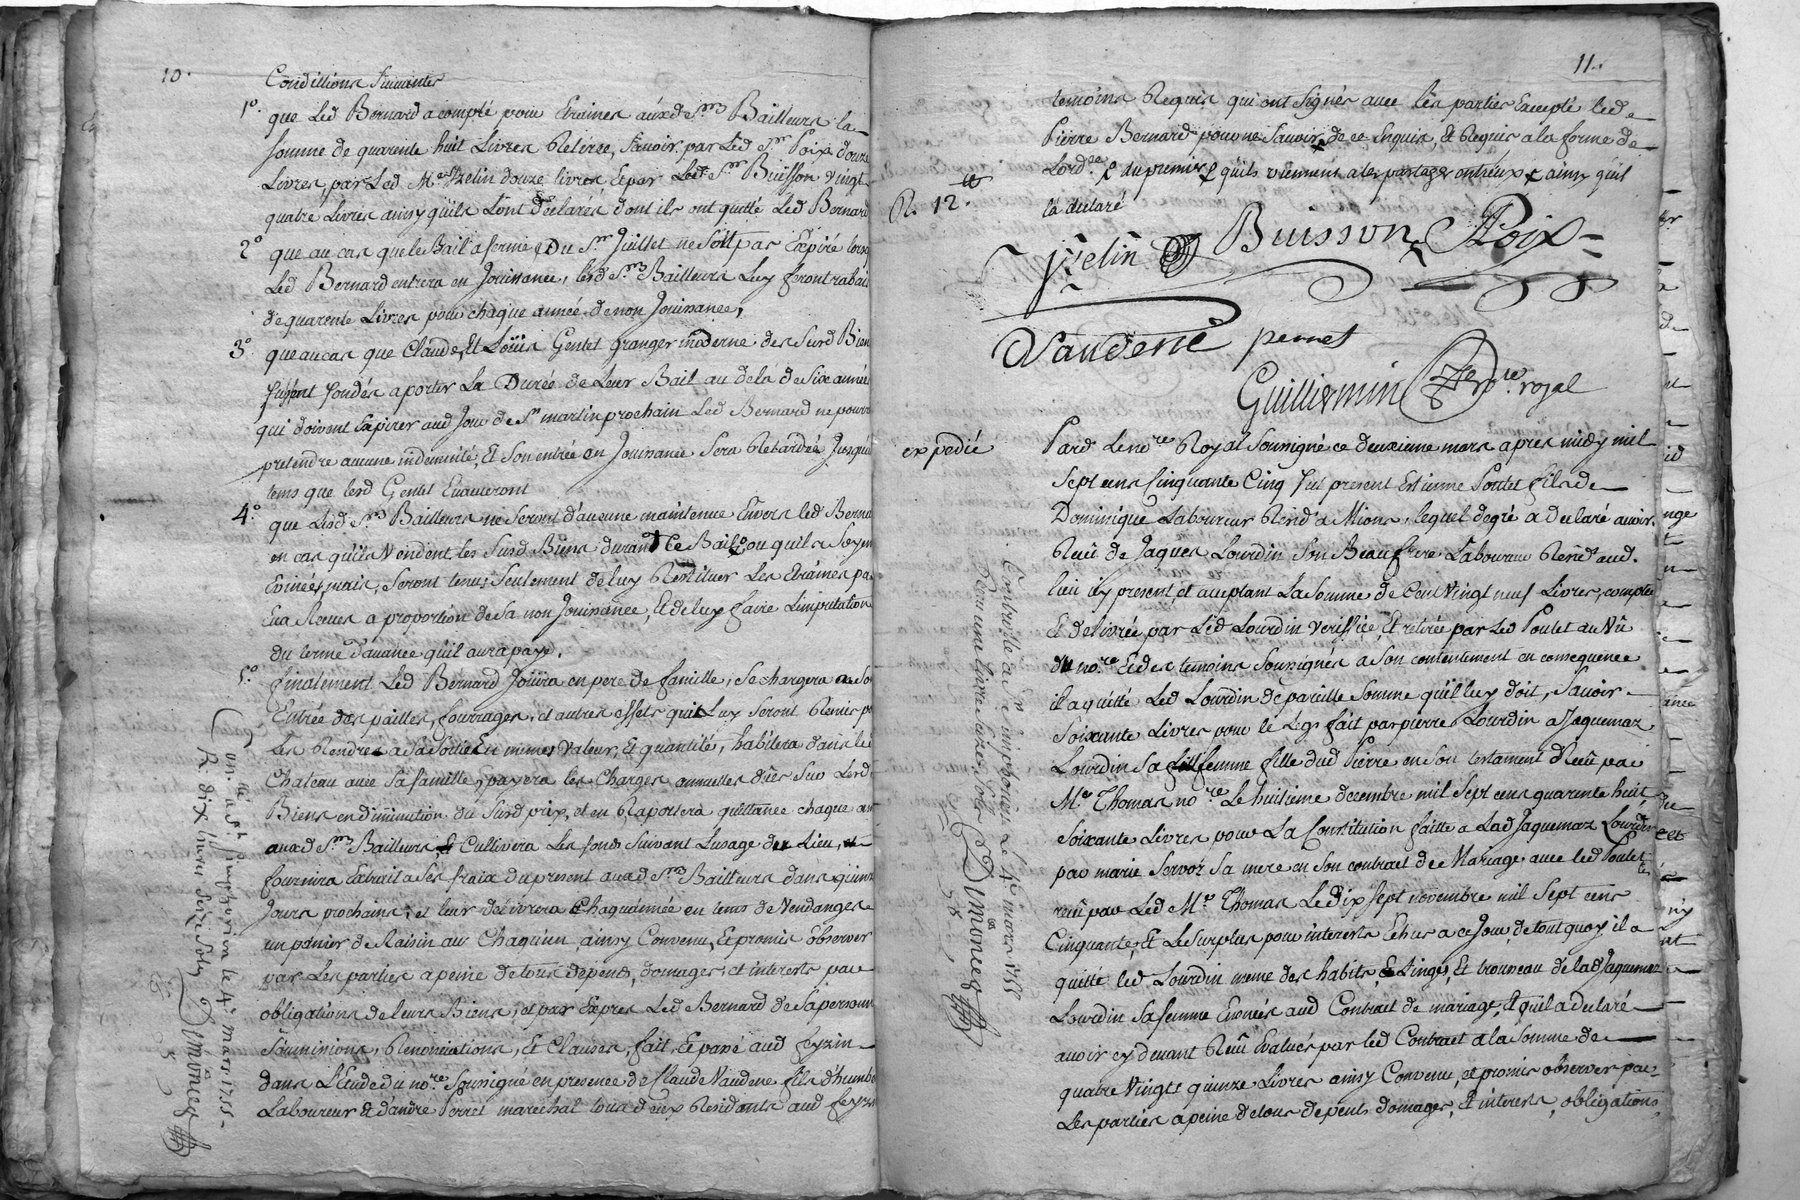 10.
Conditions suivantes
1°. que led Bernard a compté pour Etreines auxd. Srs Bailleurs la
somme de quarente huit Livres Retirée, sçavoir par led Sr Poix douze
Livres, par Led Me Yzelin douze livres et par Led. Sr Buisson vingt
quatre Livres ainsy quils l'ont déclarés dont ils ont quitté Led Bernard
2° que au cas que le Bail a ferme du Sr Juillet ne soit pas Expiré lorsq
Led Bernard entrera en Jouissance, lesd Srs Bailleurs Luy feront rabais
de quarente Livres pour chaque année de non Jouissance,
3° que au cas que Claude, Et Loüis Gentet granger moderne des Susd Bien
fussent fondés a porter La Durée de Leur Bail au dela de Six années
qui doivent s'expirer aud Jour de St martin prochain Led Bernard ne pourra
pretendre aucune indemnité, Et Son entrée en Jouissance Sera Retardée Jusqu'au
tems que lesd Gentet Evacueront
4°. que Lesd Srs Bailleurs ne seront d'aucune maintenue Envers led Berna
en cas qu'ils Vendent les Susd Biens durant Ce Bail, ou quils Soyen
Evincés, mais, seront tenus seulement de luy Restituer Les Etreines pa
Eux Recues a proportion de Sa non Jouissance, Et de luy faire L'imputation
du terme d'avance qu'il aura payé.
5°. finalement Led Bernard Joüira en pere de famille, Se chargera a So
Entrée des pailles, fourrages, et autres effets qui Luy seront Remis p
Les Rendre a sa sortie En meme, Valeur, Et quantité, habitera dans le
Chateau avec sa famille, payera les Charges annuelles dües Sur Lesd
Biens en diminution du Susd prix, et en Raportera quittance chaque an
auxd Srs Bailleurs, Et Cultivera Les fonds suivant L'usage du Lieu, et
fournira Extrait a Ses fraix du present auxd Srs Bailleurs dans quinz
Jours prochains, et leur delivrera Chaque année en tems de Vendanges
un panier de Raisin aux Chacun, ainsy Convenu, Et promis observer
par Les parties a peine de tous depents, domages, et interets par
obligations de leurs Biens, et par Expres Led Bernard de Sa personn
Soumissions, Renonciations, Et Clauses, fait, Et passé aud feyzin
dans L'Etude du nore Soussigné en presence de Claude Vaudene fils d'humbe
Laboureur Et d'andré Perret marechal tous deux Residants aud feyz
Con.llé a St simphorien le 4e mars 1755.
R. dix livres seize sols Dumünes
11.
temoins Requis qui ont Signés avec les parties Excepté led
Pierre Bernard pour ne Savoir de ce Enquis, Et Requis a la forme de
Lord.ce & du premier & quils viennent a les partager entreux & ainsy quil
R. 12.tt
la declaré
Yzelin Buisson Poix
Vaudene perret
Guilliermin nore royal
expedié
Pard. Le nore Royal Soussigné ce deuxieme mars apres midy mil
Sept cens Cinquante Cinq fut present Estienne Poulet fils de
Dominique Laboureur Resid.t a Mions, lequel degré a declaré avoir
Receu de Jaques Lourdin Son Beau frere Laboureur Resid.t aud.
lieu icy present, et acceptant La Somme de Cent Vingt neuf Livres, comptée
Et delivrée par Led Lourdin Verifiée, Et retirée par Led Poulet au Vû
du nore Et des temoins Soussignés a Son contentement en consequence
il a quitté Led Lourdin de pareille Somme qu'il luy doit, Savoir
Soixante Livres pour le Legs fait par pierre Lourdin a Jaquemaz
Lourdin Sa femme fille dud Pierre en Son testament Receu par
Me Thomas nore Le huitieme decembre mil Sept cens quarente huit
Soixante Livres pour La Constitution faitte a Lad Jaquemaz Lourdin
par marie Servoz Sa mere en Son contract de Mariage avec led Poulet
receu par Led Me Thomas Le dix Sept novembre mil Sept cens
Cinquante, Et Le Surplus pour interets Echus a ce Jour, de tout quoy il a
quitté led. Lourdin meme des habits, Linges, Et trousseau de lad Jaquemaz
Lourdin Sa femme Enoncés aud Contract de mariage, Et quil a declaré
avoir cy devant Receu Evalués par led Contract a la Somme de
quatre Vingts quinze Livres ainsy Convenu, et promis observer par
Les parties a peine de tous depents domages, Et interets, obligations
Controllé a St simphorien Le 4e mars 1755
Reçu une livre seize sols Dumünes